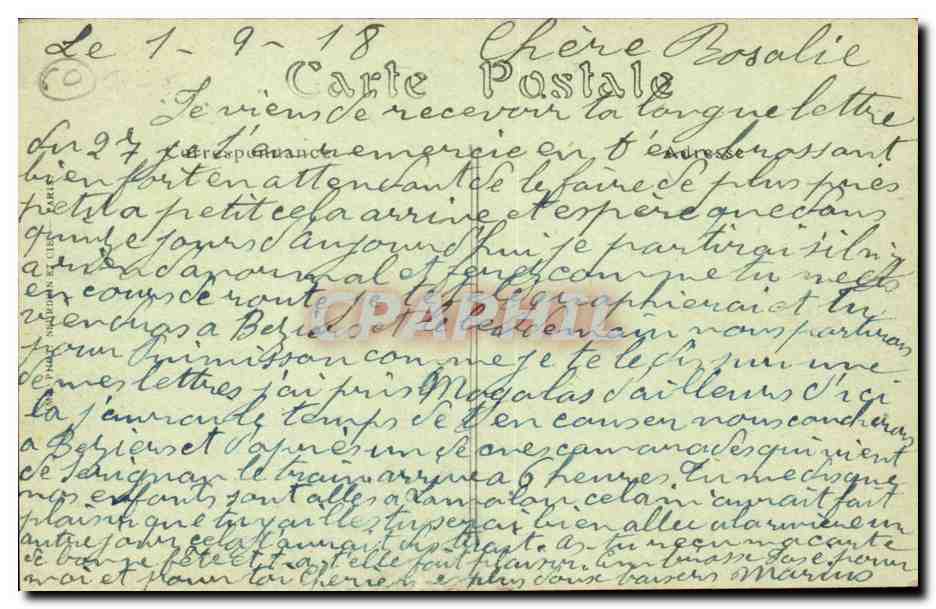 Le 1 - 9 - 18 Chère Rosalie
60
Carte Postale
Je viens de recevoir ta longue lettre
Correspondance Adresse
du 27 je t'en remercie en t'embrassant
bien fort en attendant de le faire de plus près
petit a petit cela arrive et espère que dans
quinze jours d'aujourd'hui je partirai s'il n'y
a rien d'anormal et ferez comme tu
en cours de route je te telegraphierai et tu
viendras a Beziers et le lendemain nous partirons
pour Puimisson comme je te le dis sur une
de mes lettres j'ai pris Magalas d'ailleurs d'ici
la j'aurai le temps de t'en causer nous coucherons
a Beziers et d'après un de mes camarades qui vient
de Serignan le train arrive a 6 heures. Tu me dis que
nos enfants sont alles a Lamalou cela m'aurait fait
plaisir que tu y ailles tu serai bien allee a la riviere un
autre jour cela t'aurait distrait. As-tu reçu ma carte
de bonne fête et t'a t'elle fait plaisir. une grosse pour
moi et pour toi Cherie mes plus doux baisers Marius
CPAPHIL
PHOT. NEURDEIN ET CIE. PARIS